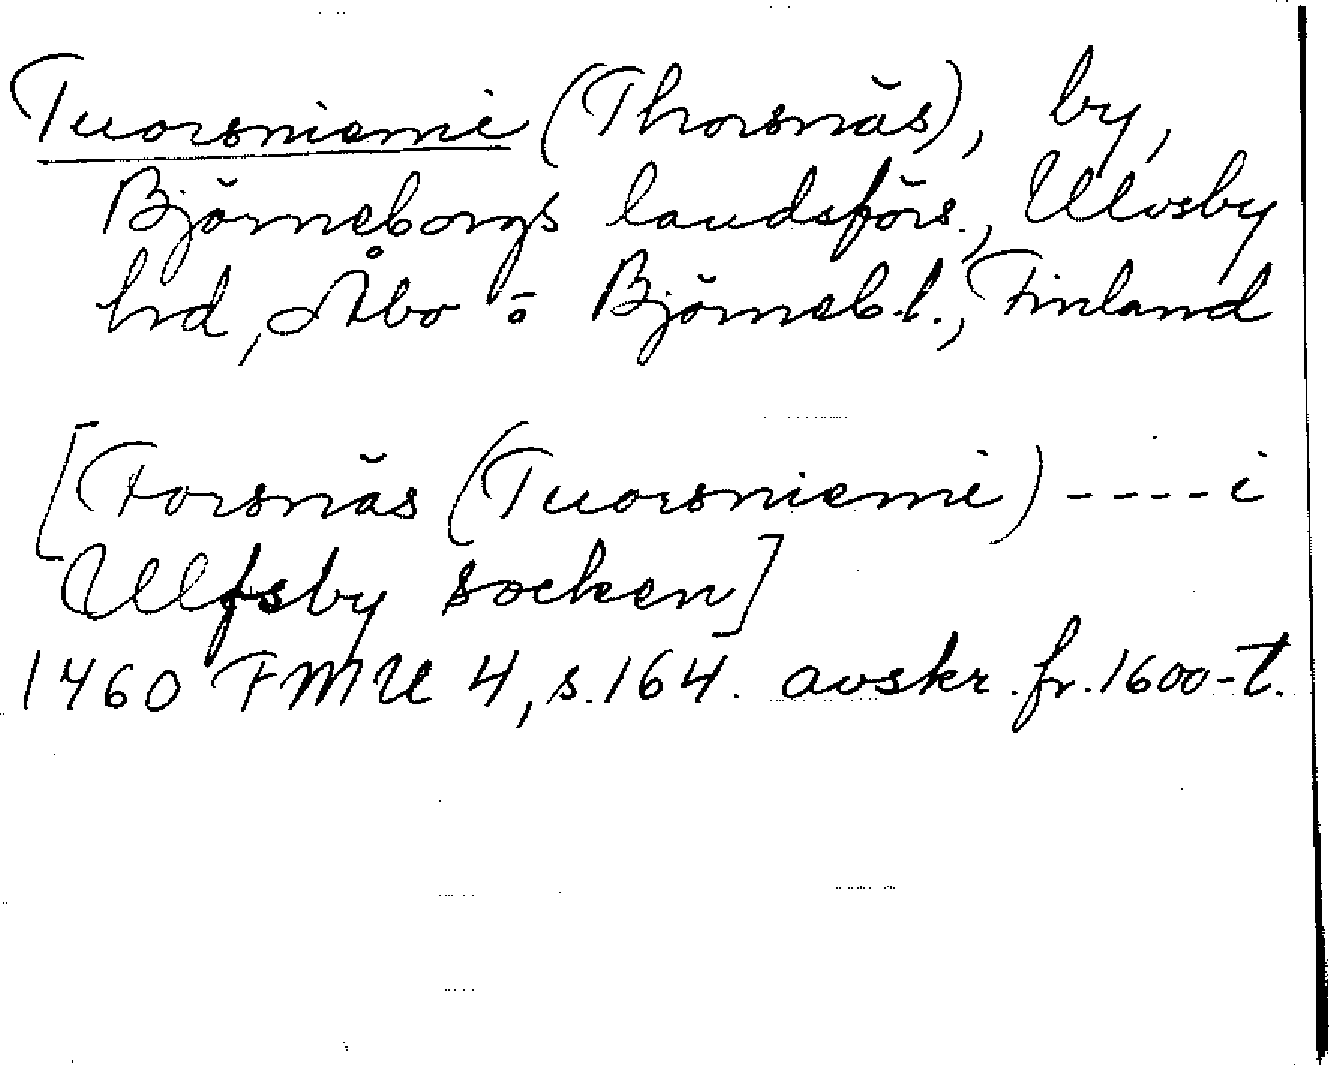 Tuorsniemi (Thorsnäs), by,
Björneborgs landsförs., Ulvsby
hd, Åbo o Björneb. l., Finland
[Torsnäs (Tuorsniemi) ---- i
Ulfsby socken]
1460 FMU 4, s. 164. avskr. fr. 1600-t.